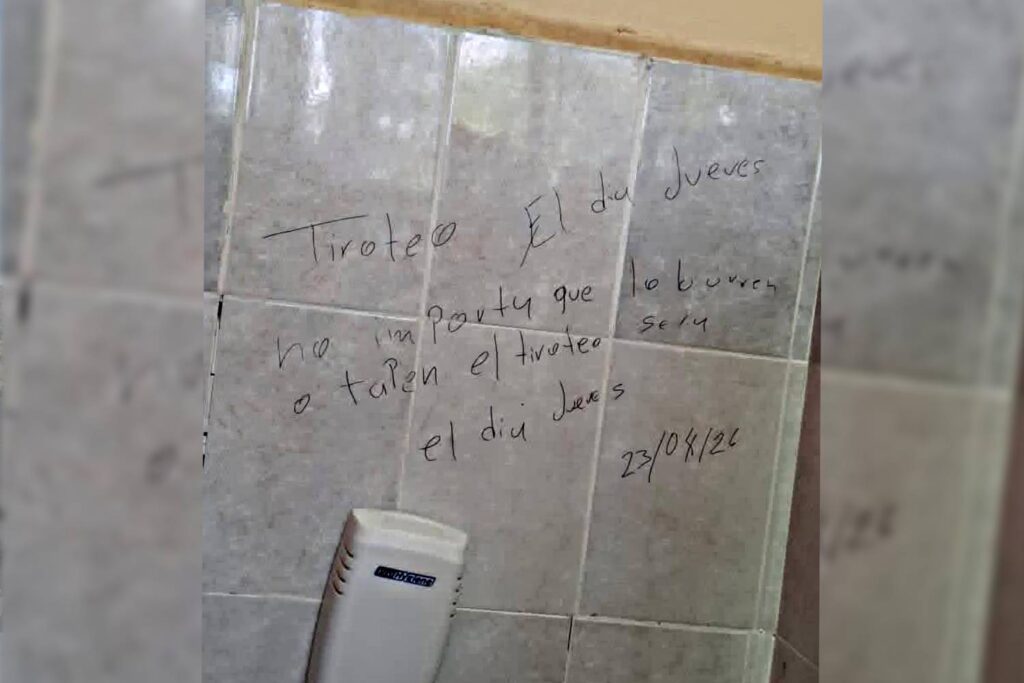 Tiroteo El dia Jueves
no importa que lo burren
o tapen el tiroteo sera
el dia Jueves
23/04/26